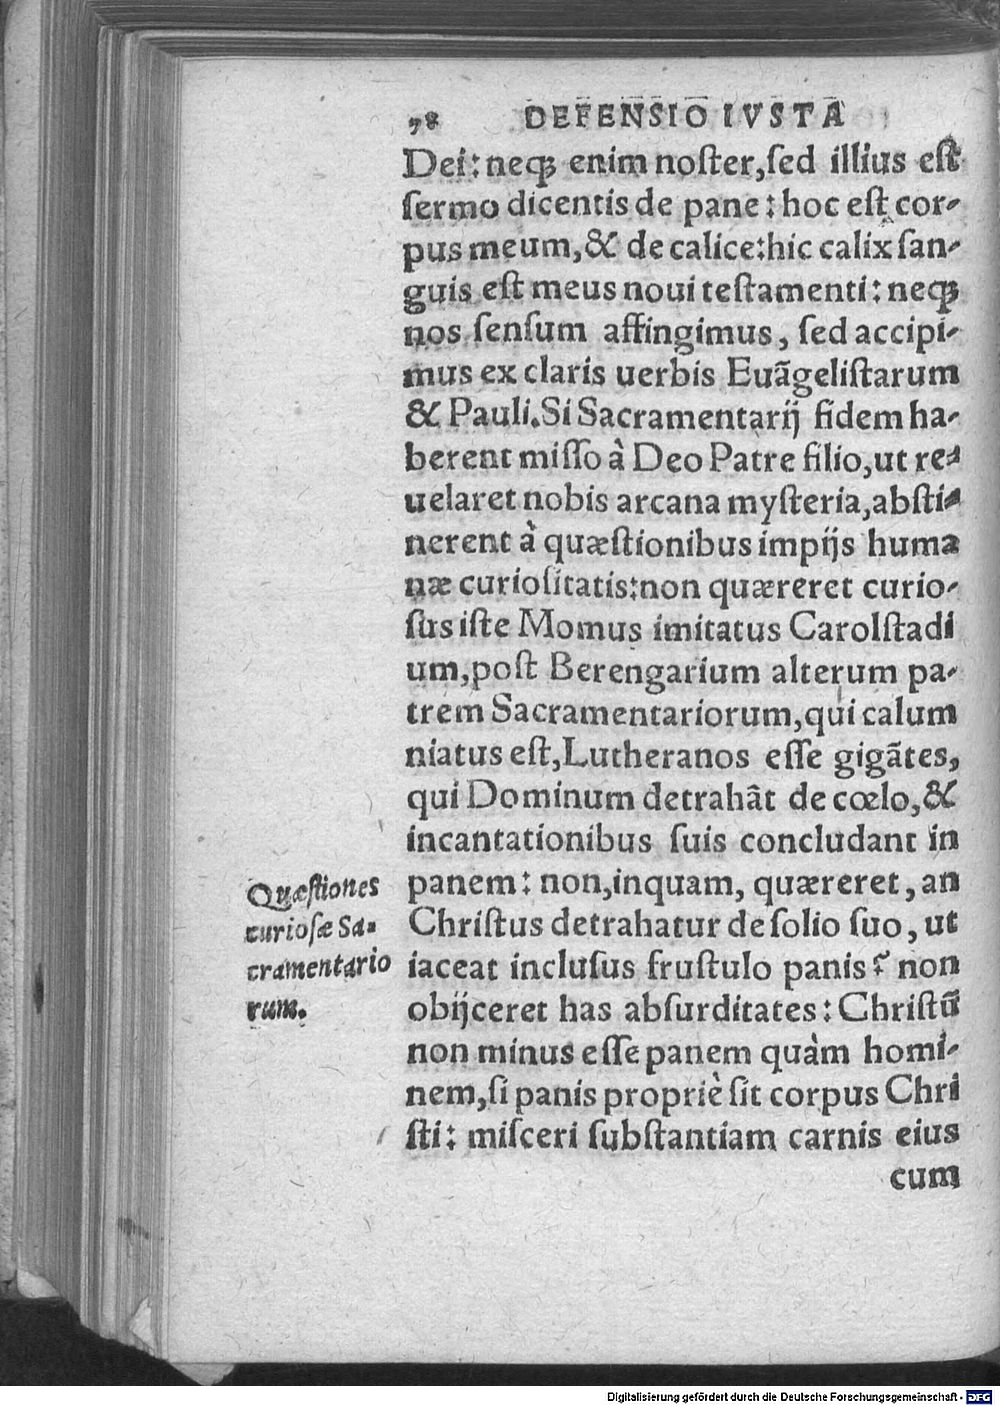 78 DEFENSIO IVSTA
Dei: neqꝫ enim noſter, ſed illius eſt
ſermo dicentis de pane: hoc eſt cor-
pus meum, & de calice: hic calix ſan-
guis eſt meus noui teſtamenti: neqꝫ
nos ſenſum affingimus, ſed accipi-
mus ex claris uerbis Euãgeliſtarum
& Pauli. Si Sacramentarij fidem ha-
berent miſſo à Deo Patre filio, ut re-
uelaret nobis arcana myſteria, abſti-
nerent à quæſtionibus impijs huma
næ curioſitatis: non quæreret curio-
ſus iſte Momus imitatus Carolſtadi
um, poſt Berengarium alterum pa-
trem Sacramentariorum, qui calum
niatus eſt, Lutheranos eſſe gigãtes,
qui Dominum detrahãt de cœlo, &
incantationibus ſuis concludant in
panem: non, inquam, quæreret, an
Chriſtus detrahatur de ſolio ſuo, ut
iaceat incluſus fruſtulo panis? non
obijceret has abſurditates: Chriſtũ
non minus eſſe panem quàm homi-
nem, ſi panis propriè ſit corpus Chri
ſti: miſceri ſubſtantiam carnis eius
cum
Quæſtiones
curioſæ Sa-
cramentario
rum.
Digitalisierung gefördert durch die Deutsche Forschungsgemeinschaft - DFG